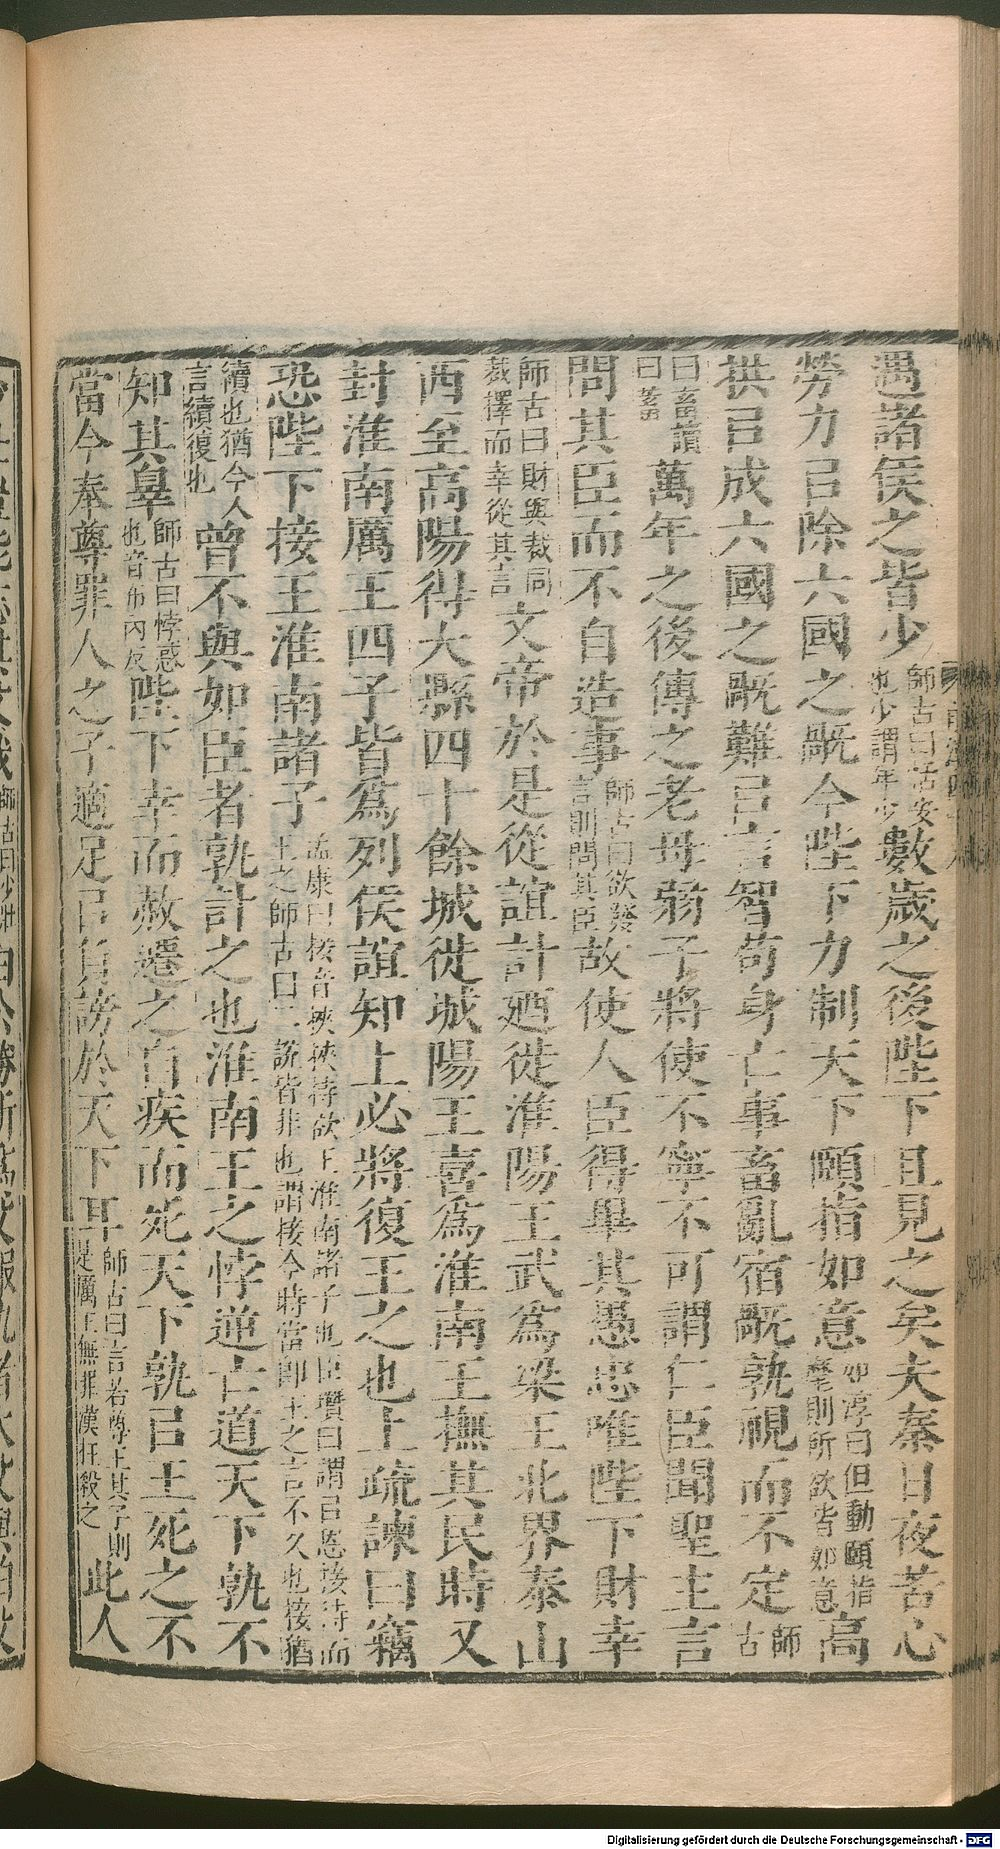 遇諸侯之皆少師古曰恬安也少謂年少數歲之後陛下且見之矣夫秦日夜苦心
勞力㠯除六國之旤今陛下力制天下頤指如意如淳曰但動頤指麾則所欲皆如意高
拱㠯成六國之旤難㠯言智苟身亡事畜亂宿旤孰視而不定師古
曰畜讀曰蓄萬年之後傳之老母弱子將使不寧不可謂仁臣聞聖主言
問其臣而不自造事師古曰欲發言則問其臣故使人臣得畢其愚忠唯陛下財幸
師古曰財與裁同裁擇而幸從其言文帝於是從誼計廼徙淮陽王武為梁王北界泰山
西至高陽得大縣四十餘城徙城陽王喜為淮南王撫其民時又
封淮南厲王四子皆為列侯誼知上必將復王之也上疏諫曰竊
恐陛下接王淮南諸子孟康曰接音挾挾持欲王淮南諸子也臣瓚曰謂㠯恩接待而王之師古曰二說皆非也謂接今時當即王之言不久也接猶
續也猶今人言續復也曾不與如臣者孰計之也淮南王之悖逆亡道天下孰不
知其辠師古曰悖惑也音布內反陛下幸而赦遷之自疾而死天下孰㠯王死之不
當今奉尊罪人之子適足㠯負謗於天下耳師古曰言若尊王其子則是厲王無罪漢枉殺之此人
Digitalisierung gefördert durch die Deutsche Forschungsgemeinschaft - DFG